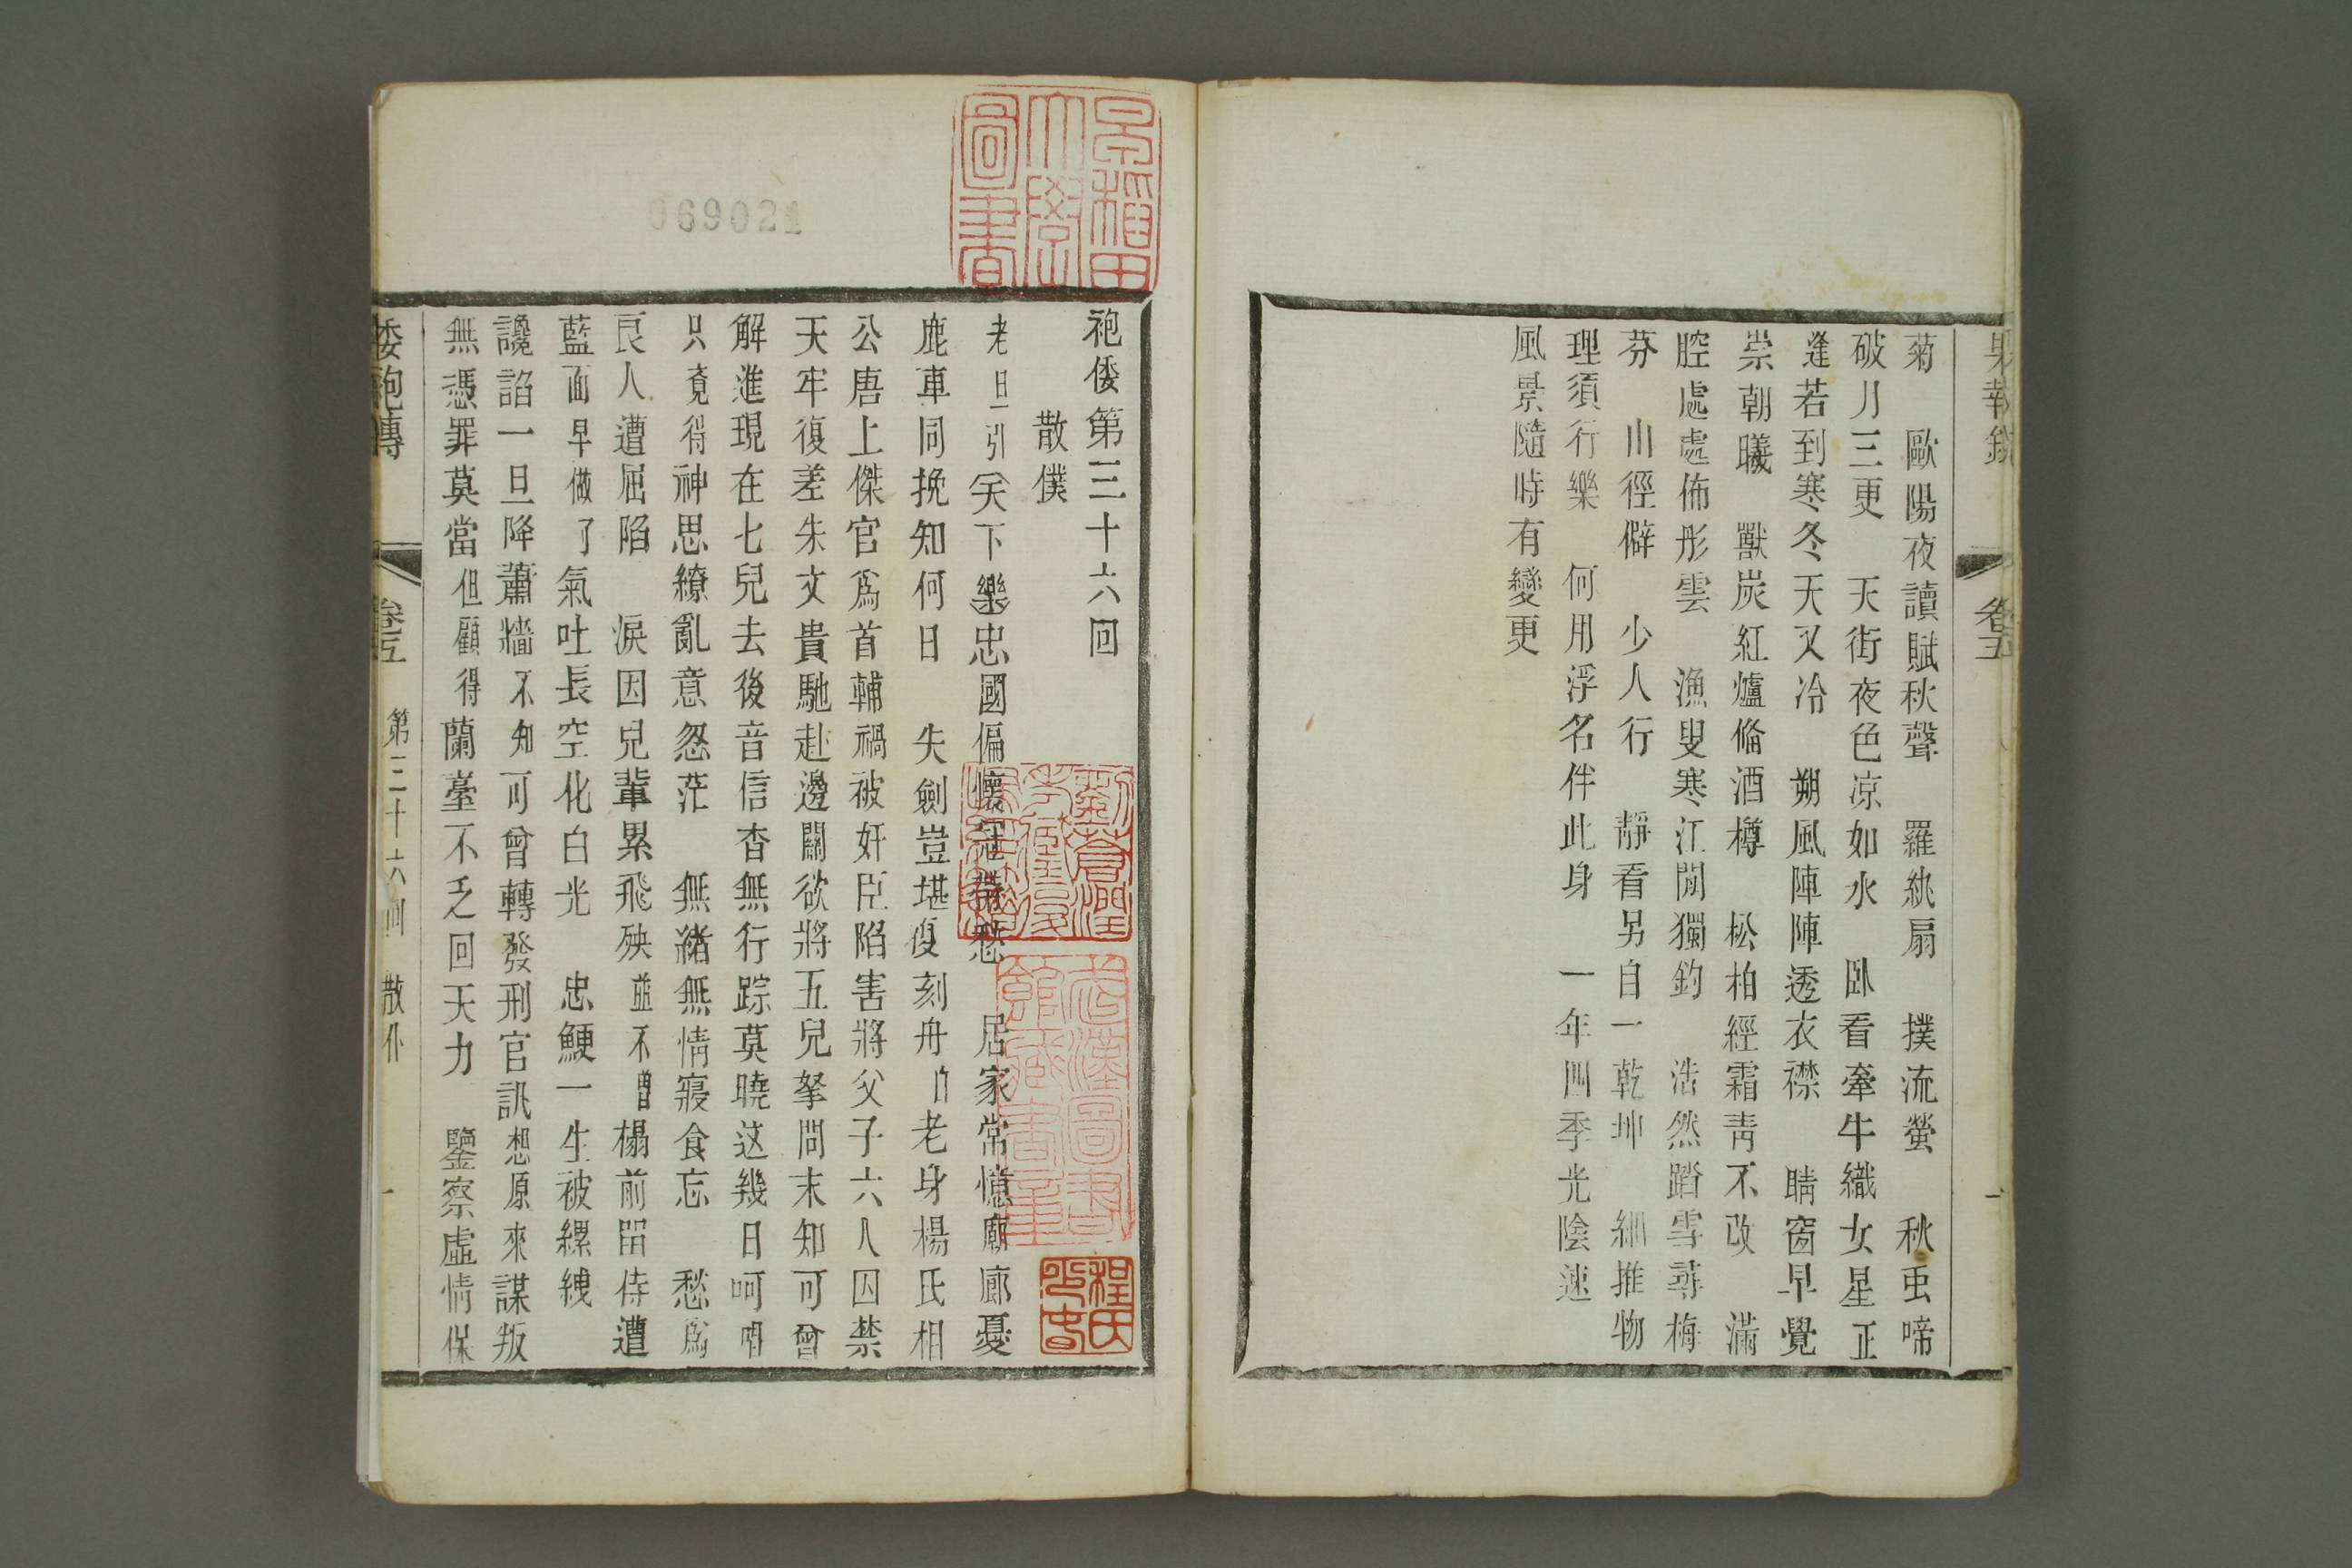 果報錄
卷五
菊　歐陽夜讀賦秋聲　羅紈扇　撲流螢　秋虫啼
破月三更　天街夜色凉如水　卧看牽牛織女星正
逢若到寒冬天又冷　朔風陣陣透衣襟　晴窗早覺
崇朝曦　獸炭紅爐偹酒樽　松柏經霜靑不改　滿
腔處處佈彤雲　漁叟寒江閒獨釣　浩然踏雪尋梅
芬　山徑僻　少人行　靜看另自一乾坤　細推物
理須行樂　何用浮名伴此身　一年四季光陰速
風景隨時有變更
袍倭第三十六回
散僕
老旦引 天下樂 忠國偏懷冠帶愁　居家常憶廟廊憂
鹿車同挽知何日　失劍豈堪復刻舟 白 老身楊氏相
公唐上傑官爲首輔禍被奸臣陷害將父子六人囚禁
天牢復差朱文貴馳赴邊關欲將五兒拏問末知可曾
解進現在七兒去後音信杳無行踪莫曉这幾日呵 唱
只覔得神思繚亂意忽茫　無緒無情寢食忘　愁爲
良人遭屈陷　淚因兒輩累飛殃並不曾榻前留侍遭
藍面早做了氣吐長空化白光　忠鯁一生被縲絏
讒諂一旦降蕭牆不知可曾轉發刑官訊想原來謀叛
無憑罪莫當但顧得蘭臺不乏回天力　鑒察虛情保
倭袍傳　卷五　第三十六回　散仆　一
早稻田大學圖書
069021